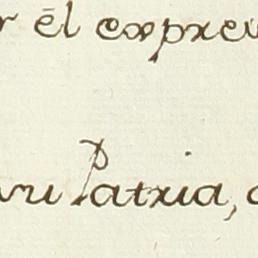 r él expre
su Patria,